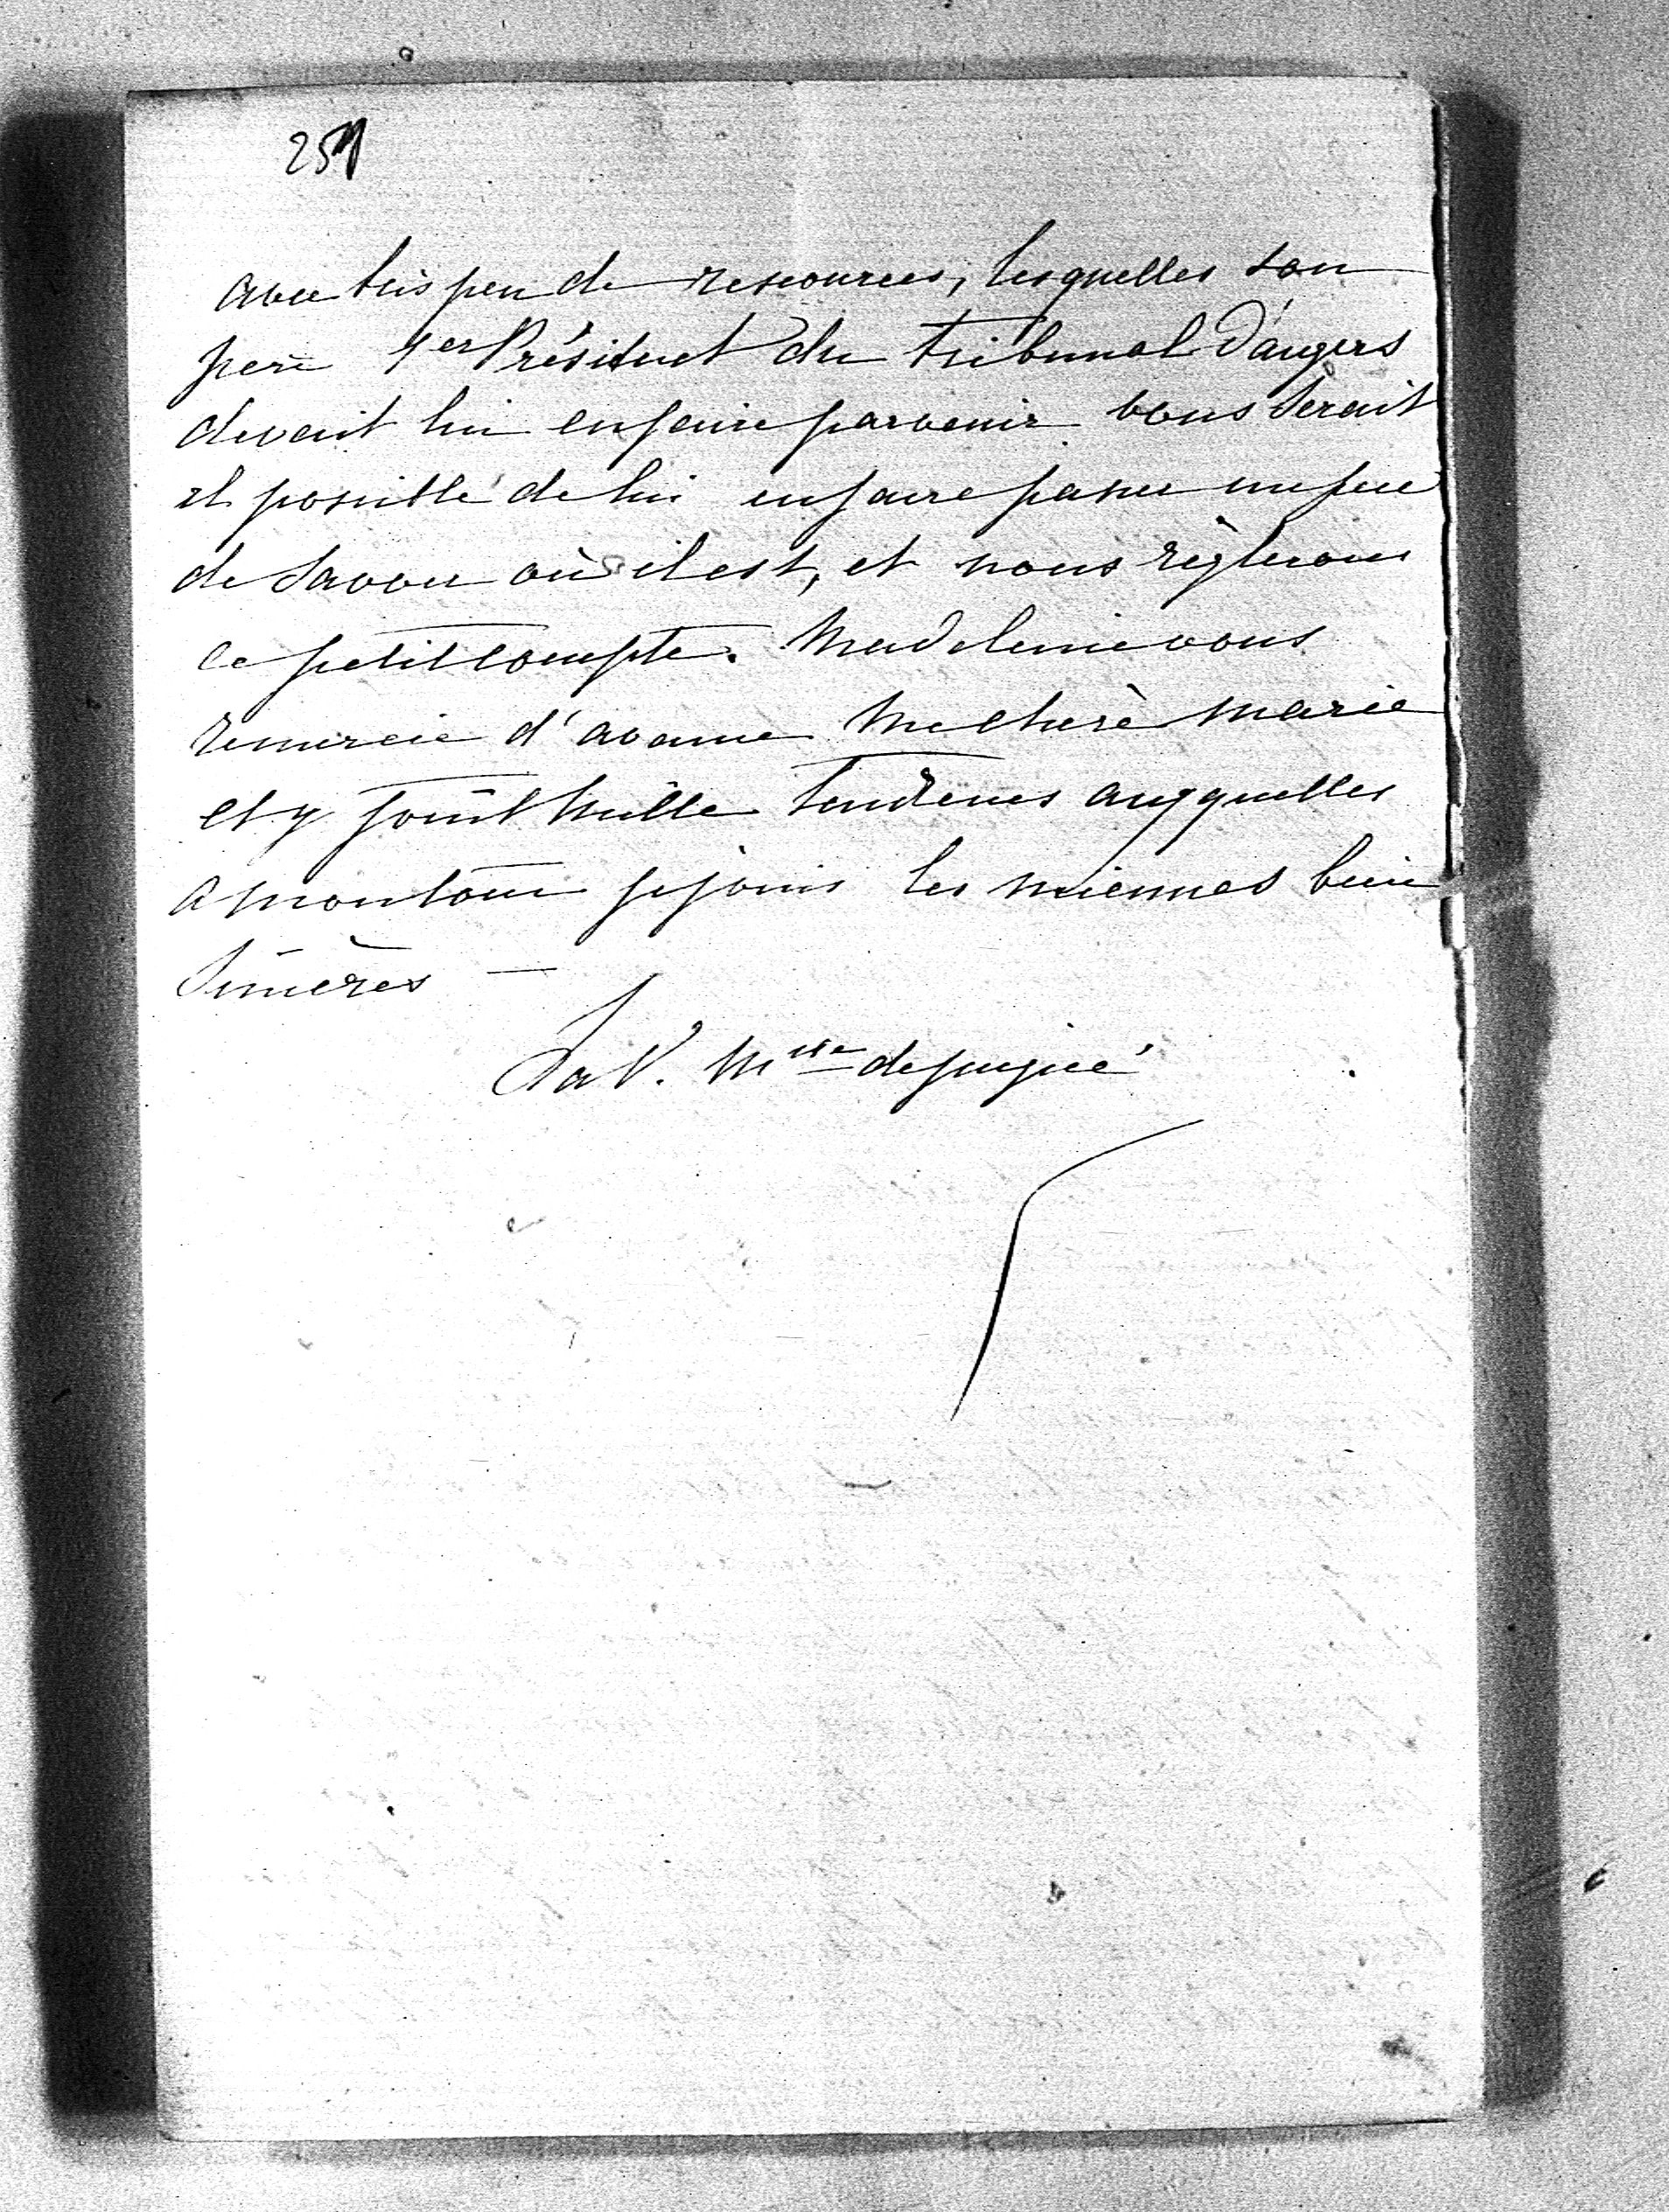 avec très peu de ressources, lesquelles son
père 1er Président du tribunal D'angers
devait lui en faire parvenir vous serait
il possible de lui en faire passer
de savoir où il est, et nous règlerons
ce petit compte. Madeleine vous
remercie d'avance Me chère Marie
et y joint mille tendresses auxquelles
a mon tour je joins les miennes bien
sincères —
La V. Mise de